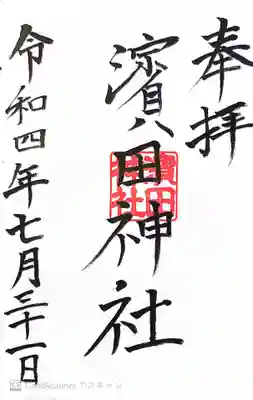 奉拝
濱田神社
令和四年七月三十一日
CS CamScanner でスキャン